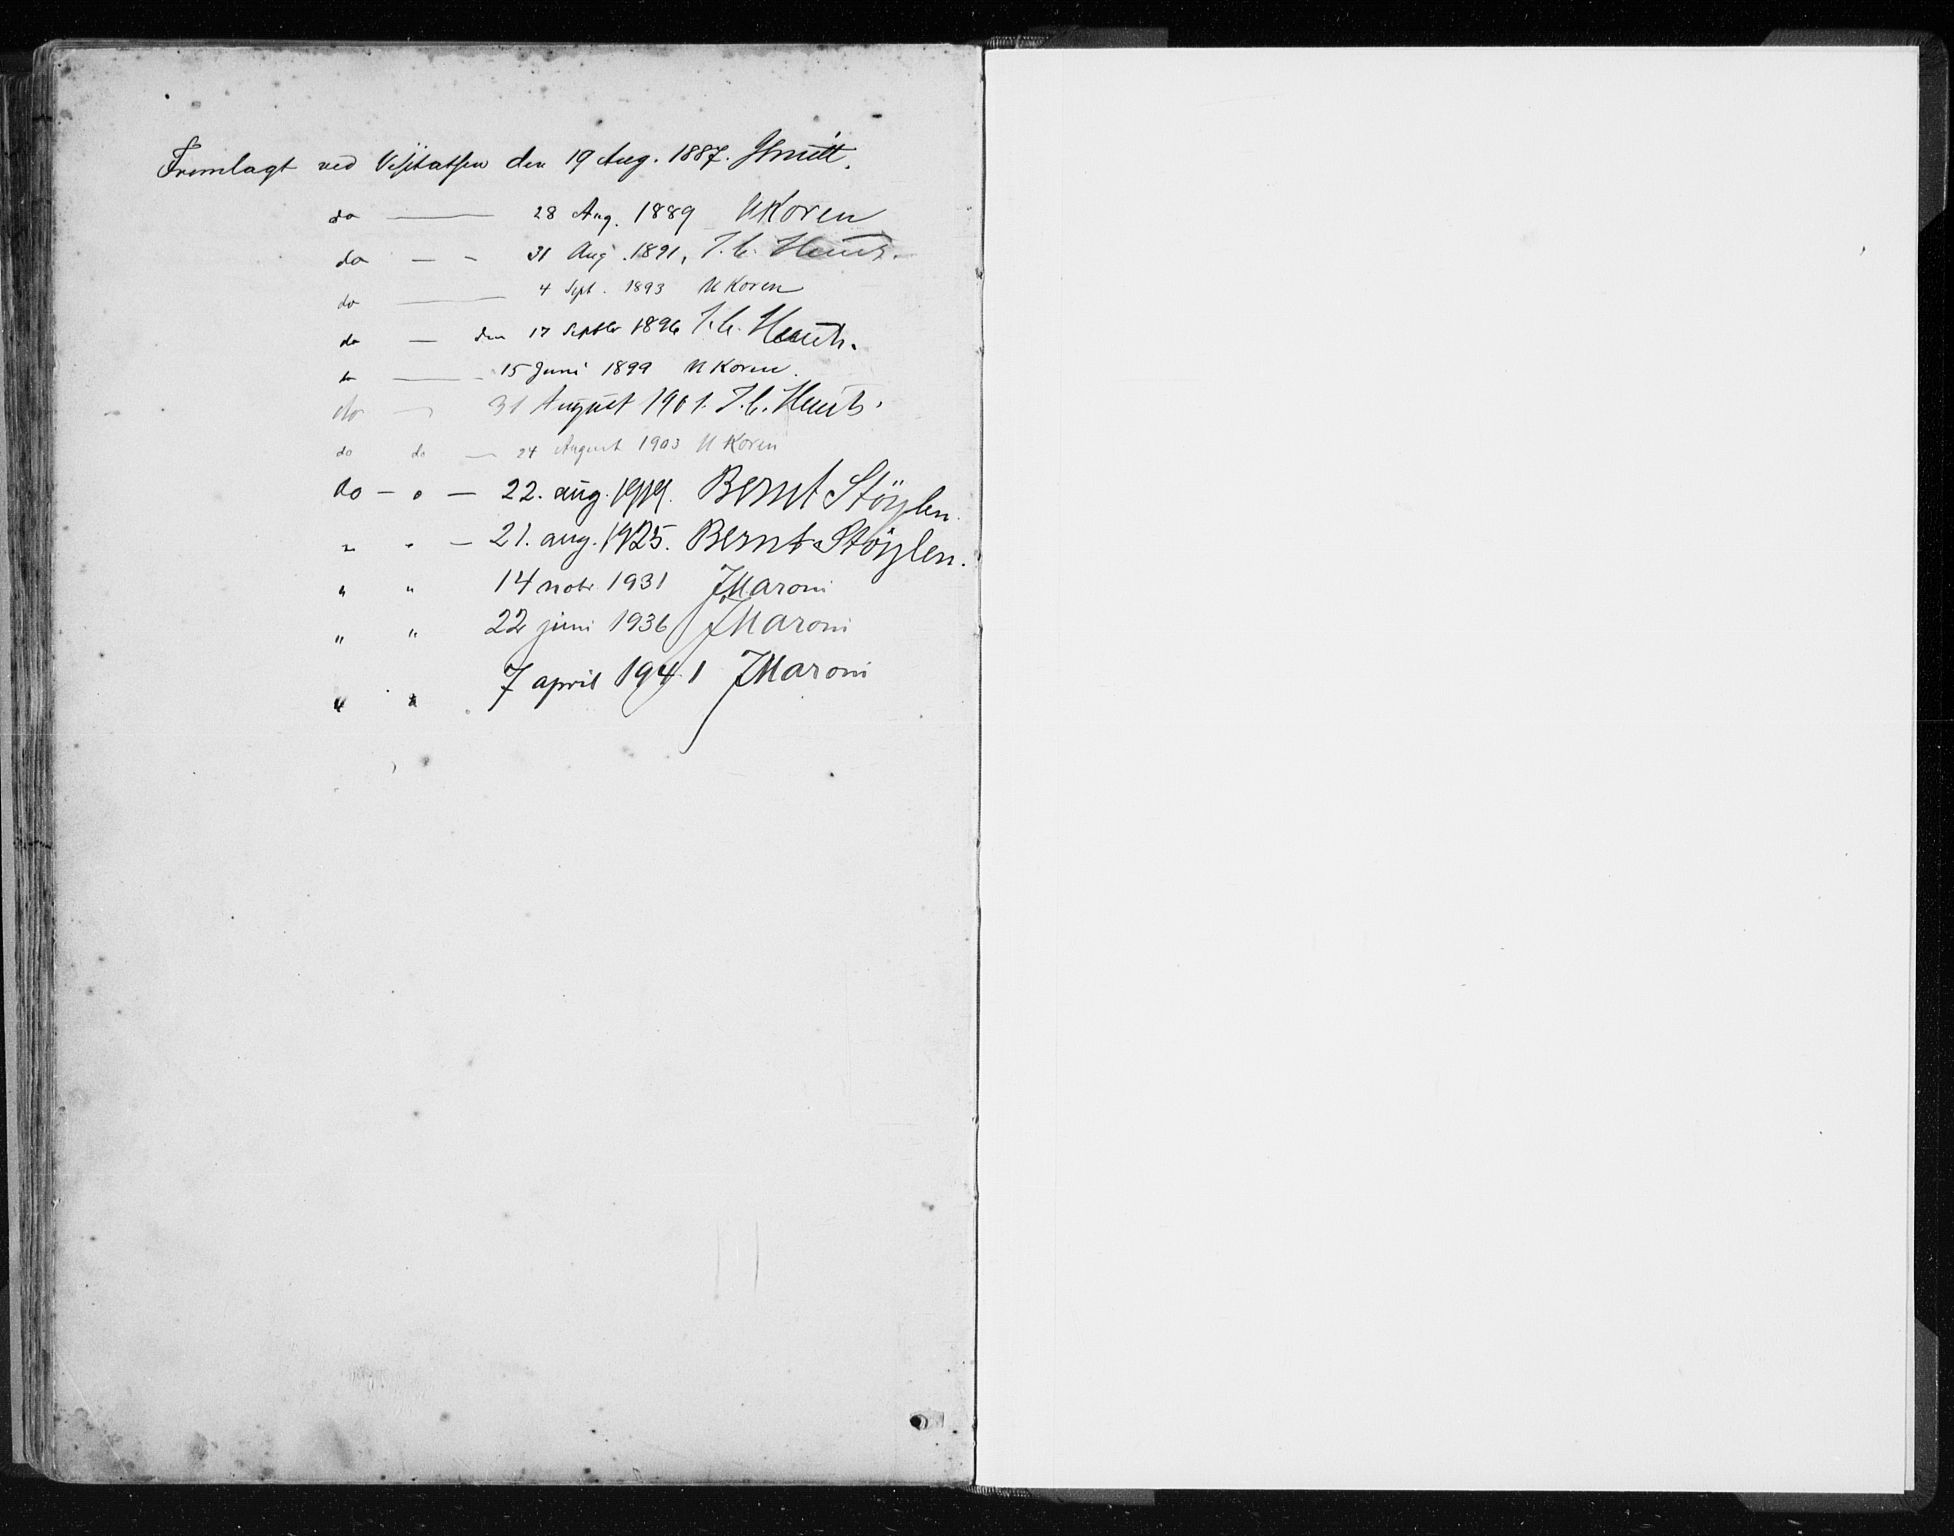 Fremlagt ved Visitatsen den 19 Aug. 1887.
do — 28 Aug. 1889 UKoren
do — - 31 Aug. 1891, J. C. Heuch.
do — 4 Sept. 1893 UKoren
do — den 17 Septbr 1896 J. C. Heuch.
do — 15 Juni 1899 UKoren.
do — 31 August 1901. J. C. Heuch.
do do — 24 August 1903 UKoren
do — " — 22. aug. 1919. Bernt Støylen.
" " — 21. aug. 1925. Bernt Støylen.
" " 14 novbr 1931 JMaroni
" " 22 juni 1936 JMaroni
" " 7 april 1941 JMaroni